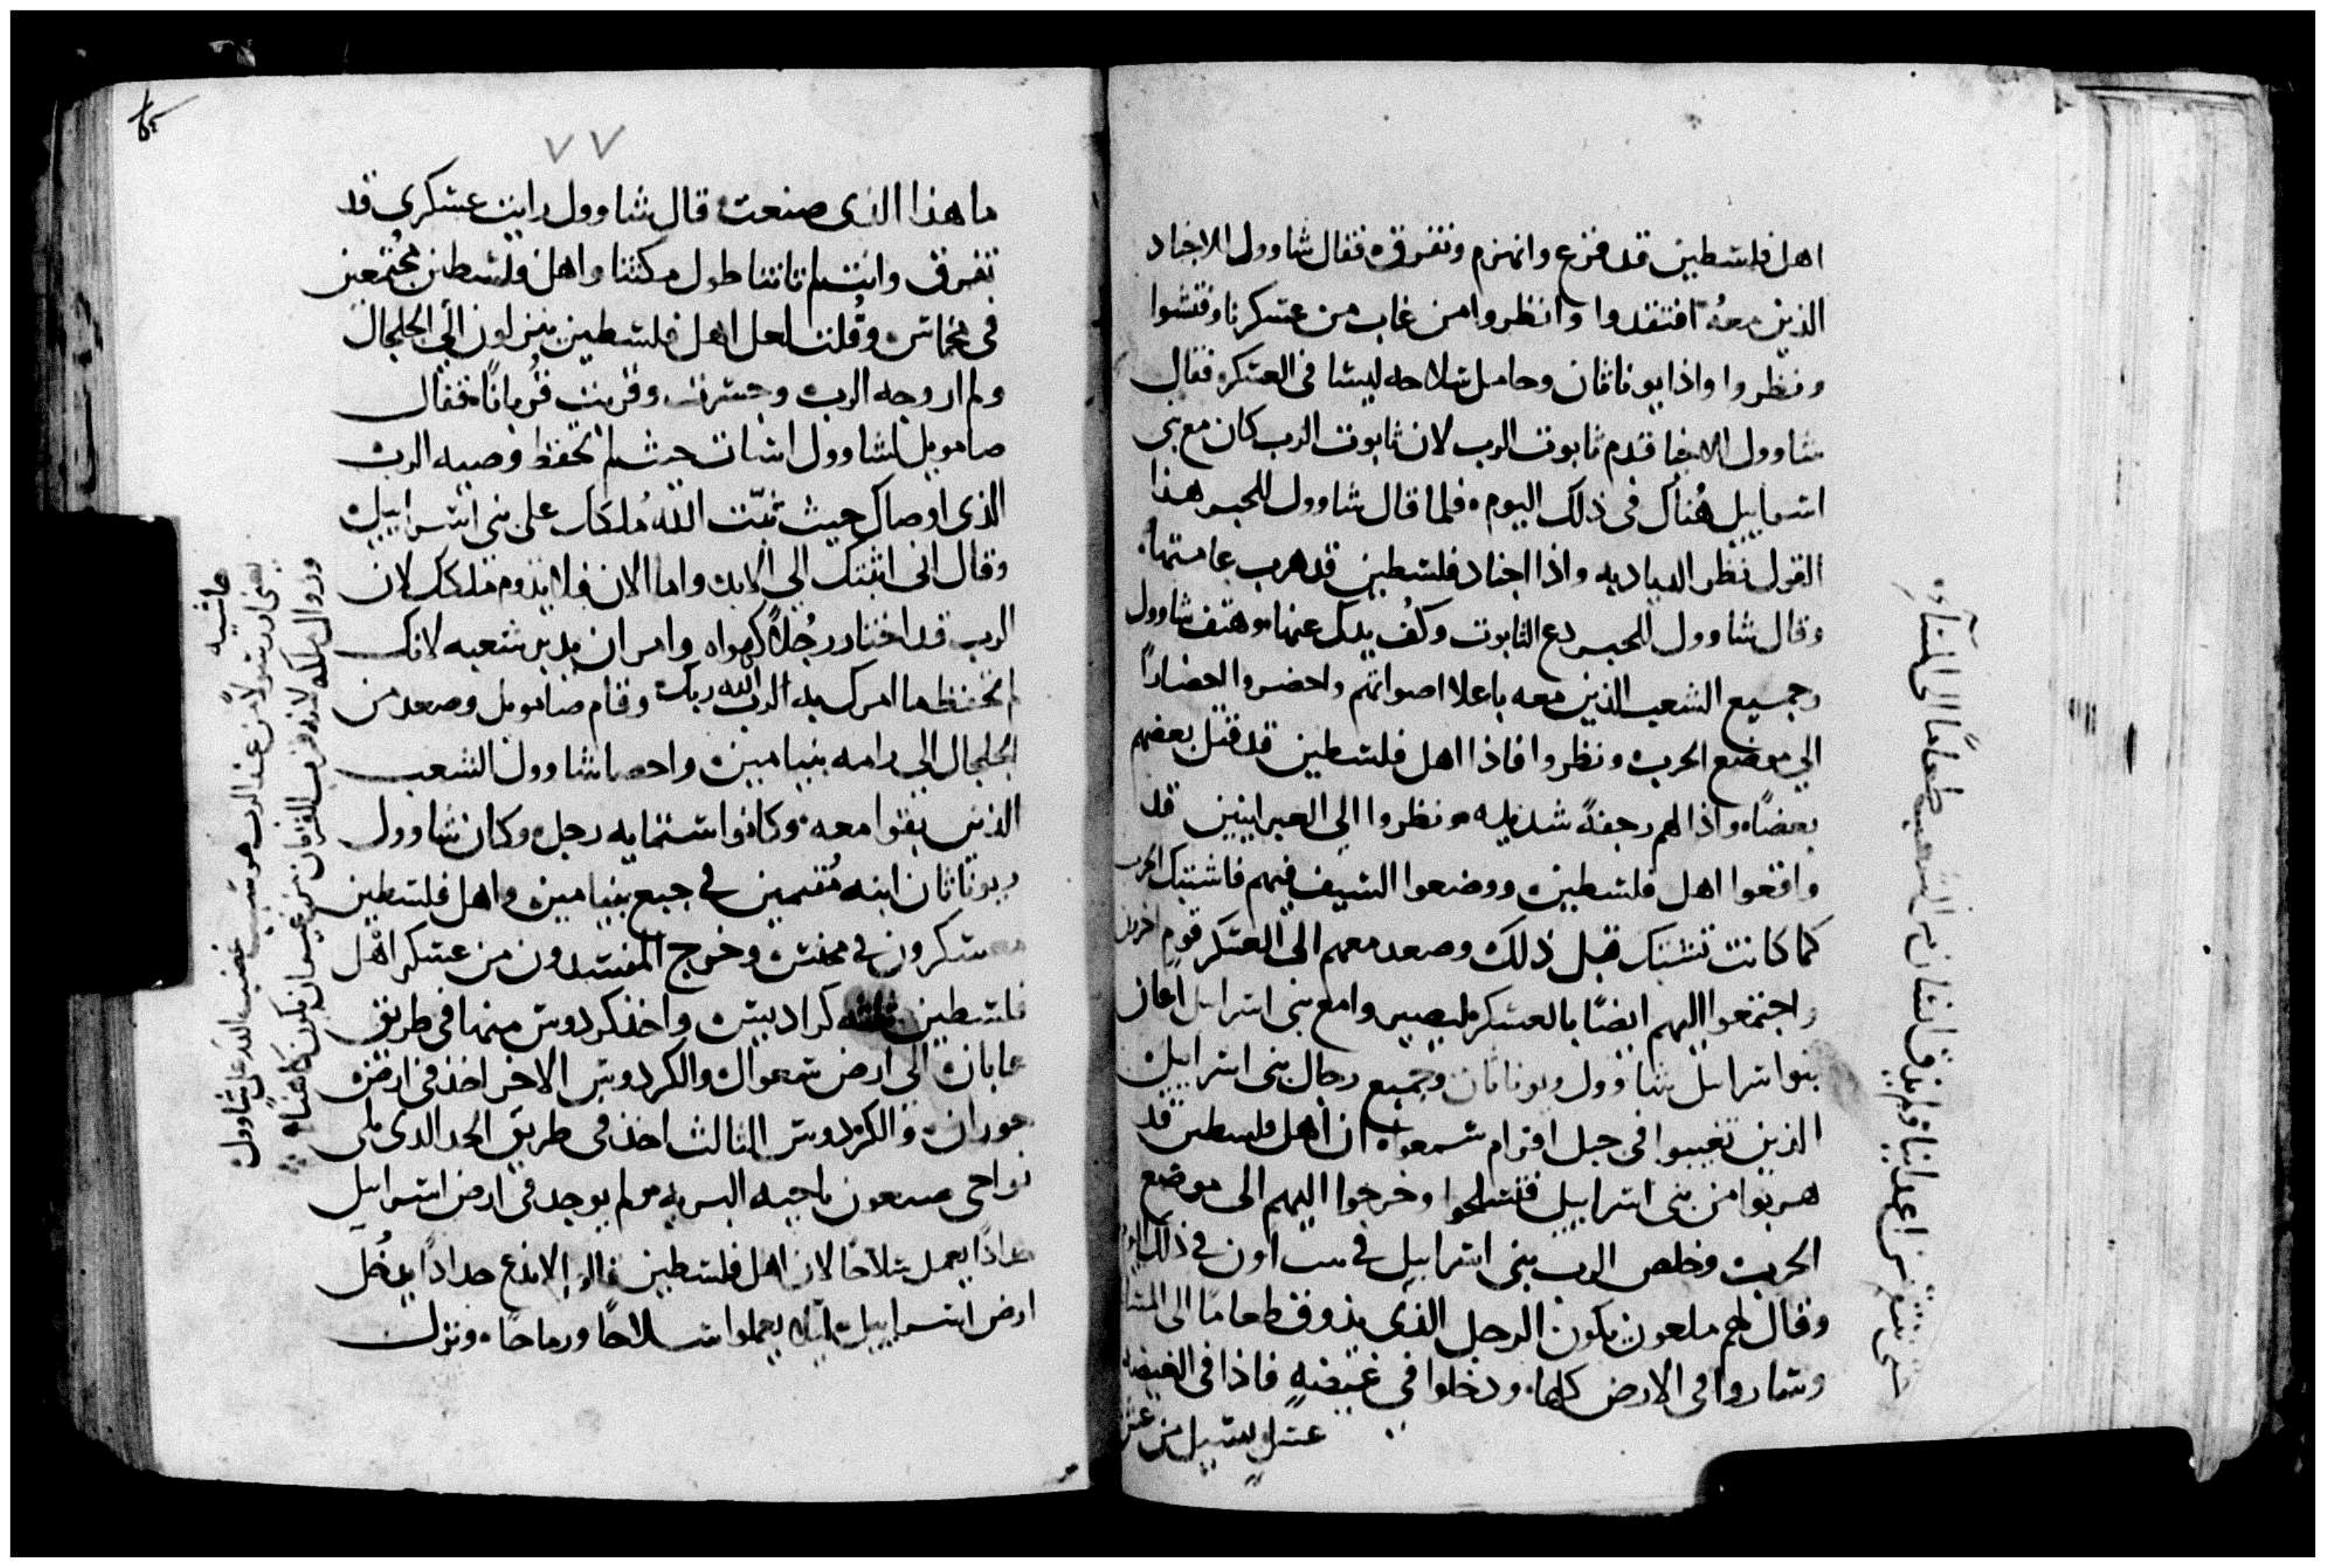 اهل فلسطين قد فزع وانهزم وتفرق فقال شاوول للاجناد
الذين معه افتقدوا وانظروا من غاب من عسكرنا وفتشوا
ونظروا واذا يوناثان وحامل سلاحه ليسا في العسكر فقال
شاوول لاخيا قدم ثابوت الرب لان ثابوت الرب كان مع بني
اسراييل هناك في ذلك اليوم فلما قال شاوول للحبر هذا
القول نظر الدباديه واذا اجناد فلسطين قد هرب عامتها
وقال شاوول للحبر دع التابوت وكف يدك عنها وهتف شاوول
وجميع الشعب الذين معه باعلا اصواتهم واحضروا احضارًا
الي موضع الحرب ونظروا فاذا اهل فلسطين قد قتل بعضهم
بعضًا واذا لهم رجفةً شديده ونظروا الي العبرانيين قد
واقعوا اهل فلسطين ووضعوا السيف فيهم فاشتبك الحرب
كما كانت تشتبك قبل ذلك وصعد معهم الي العسكر قوم اخرون
واجتمعوا اليهم ايضًا بالعسكر ليصيروا مع بني اسرايل اعان
بنو اسرايل شاوول ويوناثان وجميع رجال بني اسراييل
الذين تغيبوا في جبل افرام سمعوا ان اهل فلسطين قد
هربوا من بني اسراييل فتسلحوا وخرجوا اليهم الي موضع
الحرب وخلص الرب بني اسراييل في بيت اون في ذلك اليوم
وقال لهم ملعون يكون الرجل الذي يذوق طعامًا الي المسا
وساروا في الارض كلها ودخلوا في غيضةٍ فاذا في الغيضه
عسل يسيل من
حتي ننتقم من اعداينا ولم يذق انسان من الشعب طعامًا الي المسآء
٧٧
ما هذا الذي صنعت قال شاوول رايت عسكري قد
تفرق وانت لم تاتنا طول مكثنا واهل فلسطين مجتمعين
في مخماس وقلت لعل اهل فلسطين ينزلون الي الجلجال
ولم ار وجه الرب وجسرت وقربت قربانًا فقال
صامويل لشاوول اسات حيث لم تحفظ وصيه الرب
الذي اوصاك حيث ثبّت الله مُلكك علي بني اسراييل
وقال اني اثبتك الي الابد واما الان فلا يدوم ملكك لان
الرب قد اختار رجُلًا كهواه وامر ان يدبر شعبه لانك
لم تحفظ ما امرك به الرب الله ربك وقام صامويل وصعد من
الجلجال الي رامه بنيامين واحصا شاوول الشعب
الذين بقوا معه وكانوا ستمايه رجل وكان شاوول
ويوناثان ابنه مُقيمين في جبع بنيامين واهل فلسطين
معسكرون في مخمس وخرج المفسدون من عسكر اهل
فلسطين ثلثه كراديس واخذ كردوس منها في طريق
عابان الي ارض سعوال والكردوس الاخر اخذ في ارض
حوران والكردوس الثالث اخذ في طريق الحد الذي يلي
نواحي صبعون ناحيه البريه ولم يوجد في ارض اسراييل
حدادًا يعمل سلاحًا لان اهل فلسطين قالوا لا ندع حدادًا يدخل
ارض اسراييل ليلا يعملوا سلاحًا ورماحًا ونزل
حاشيه
يعني ان رسولًا من عند الرب هو سبب غضب الله علي شاوول
وزوال ملكه لانه قرب القربان من غير ان يكون كاهنًا